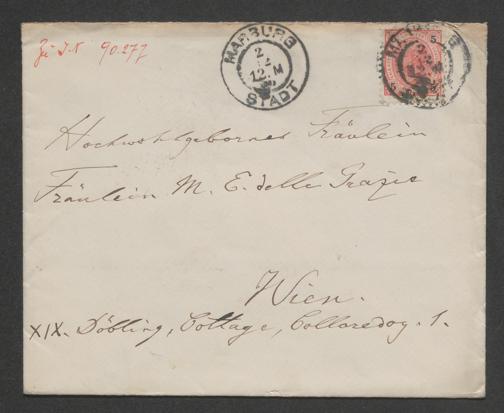 Zu I.N 90.277
MARBURG
2
12
12.M
STADT
5
Hochwohlgebornes Fräulein
Fräulein M. E. delle Grazie
Wien.
XIX. Döbling, Cottage, Colloredog. 1.